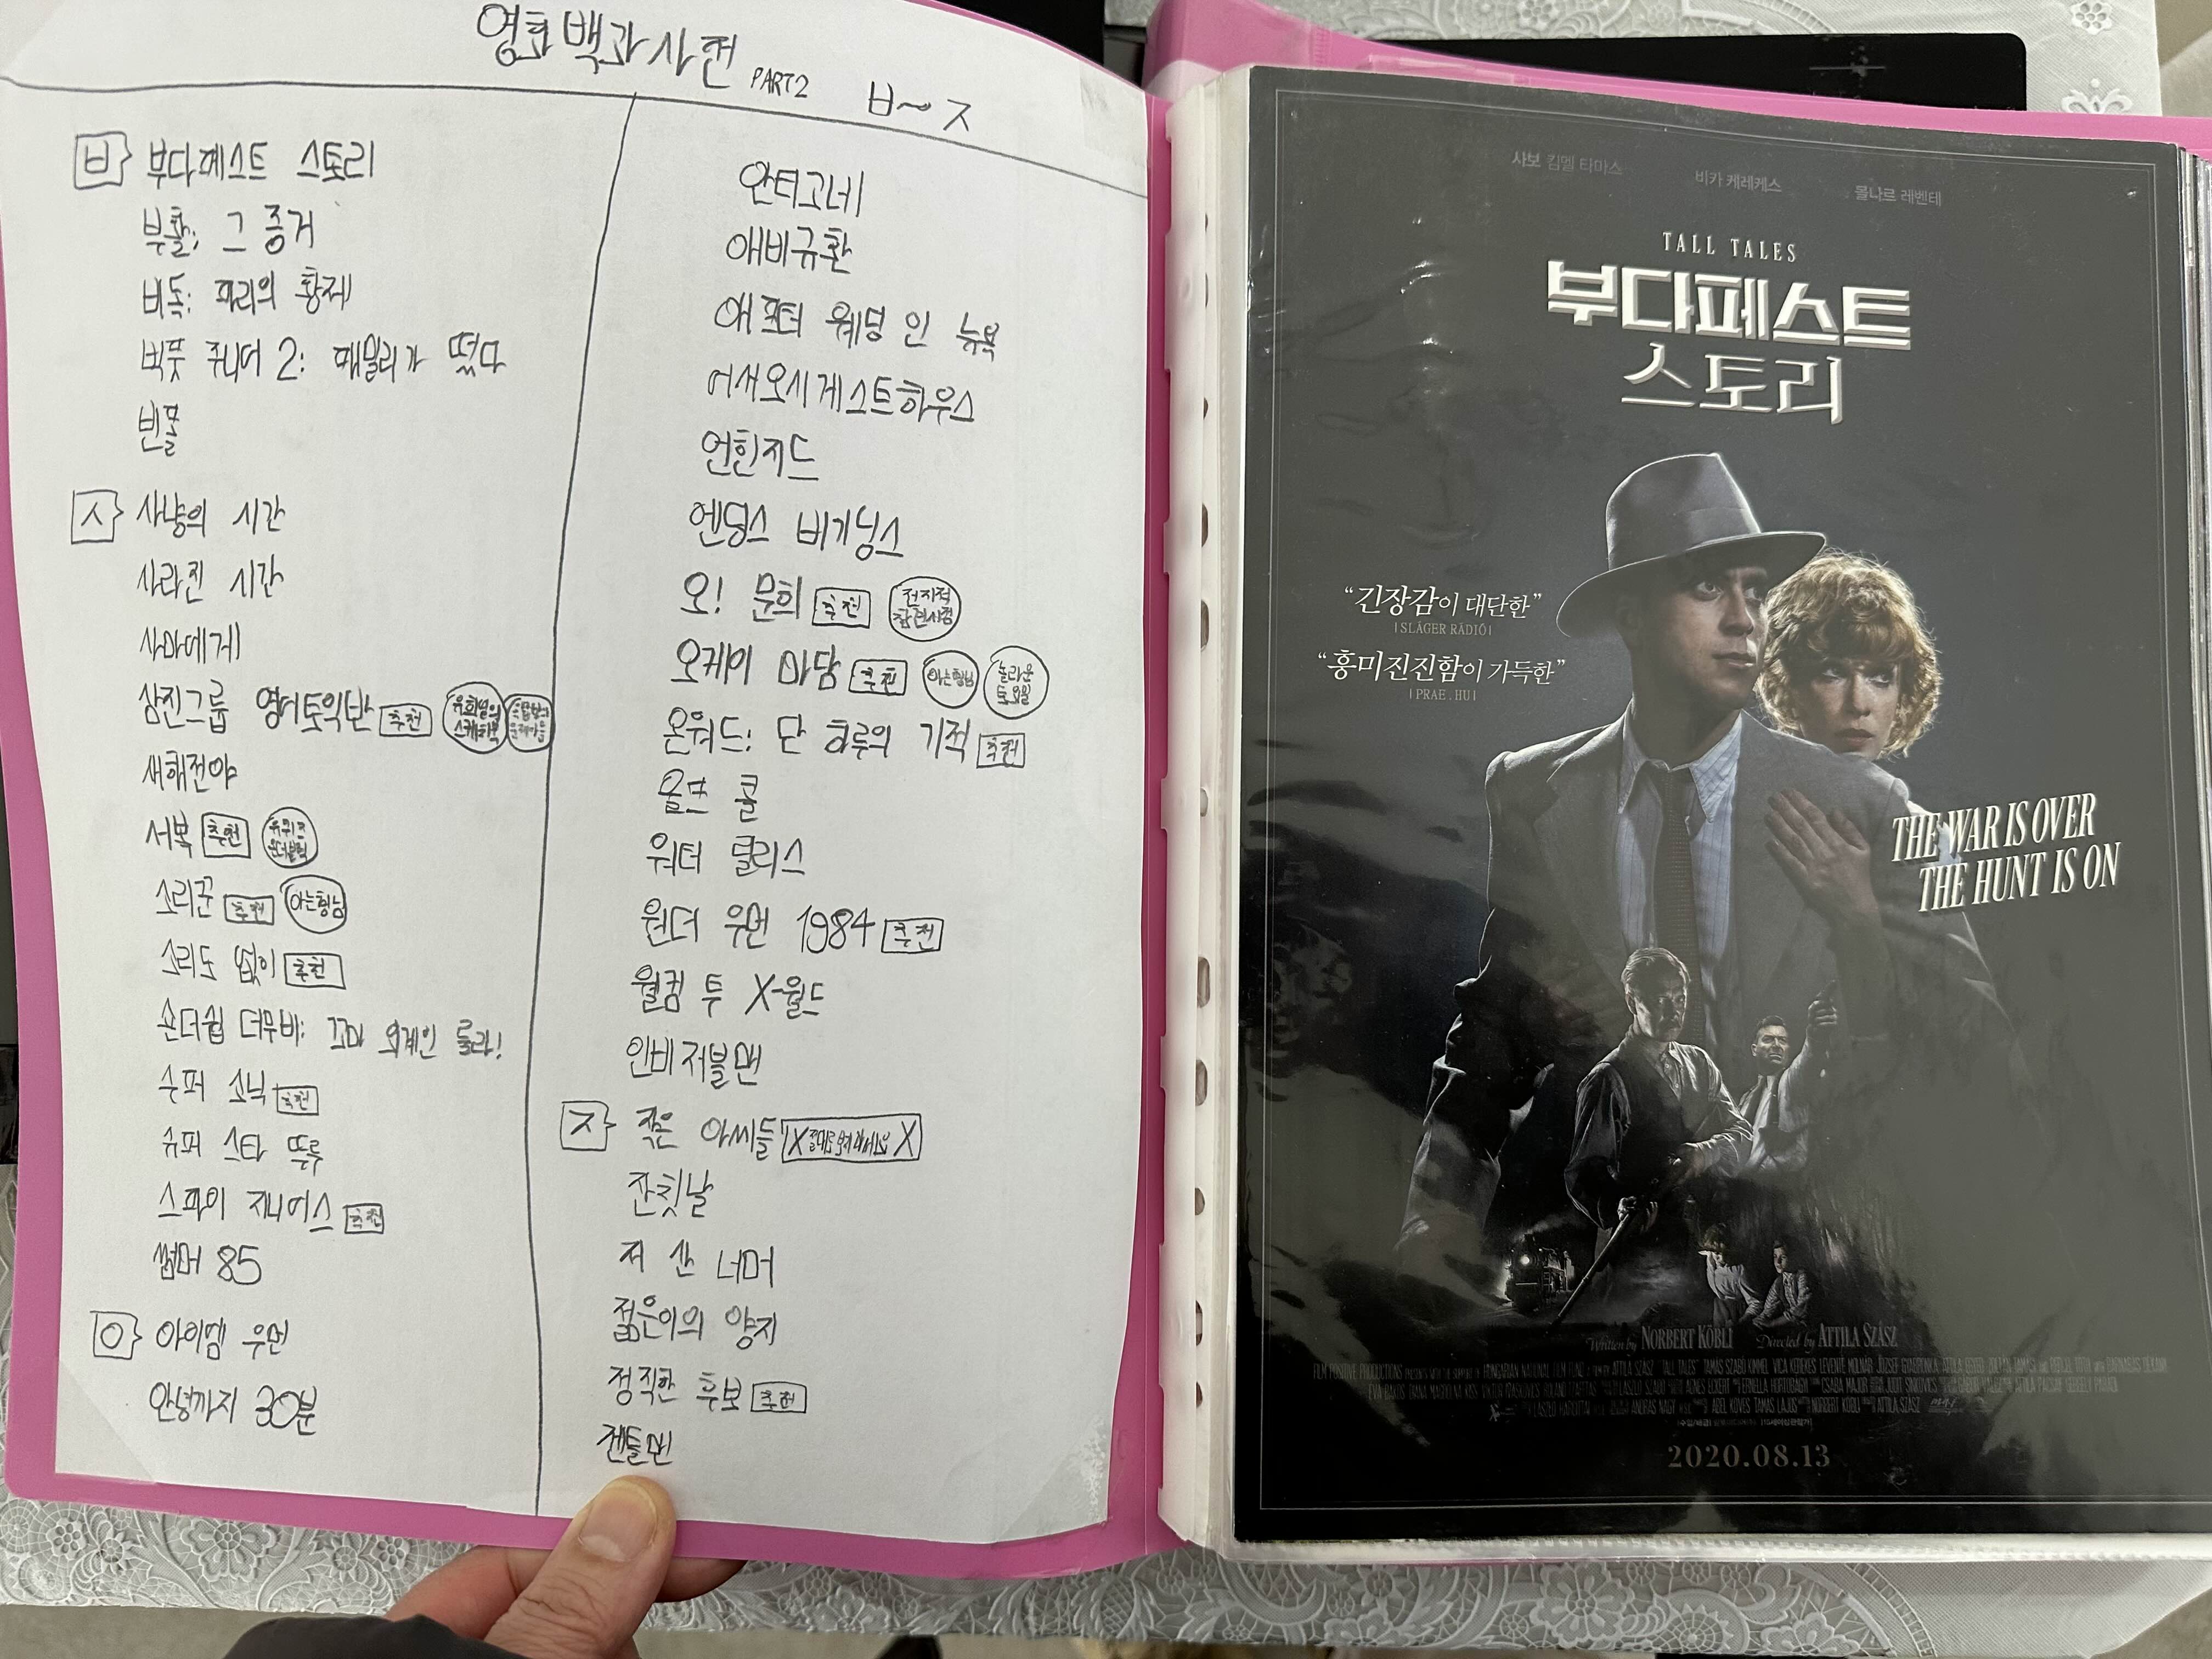 영화백과사전 PART2 ㅂ~ㅈ
ㅂ 부다페스트 스토리
부활: 그 증거
비독: 파리의 황제
빅풋 주니어 2: 패밀리가 떴다
빈폴
ㅅ 사냥의 시간
사라진 시간
사마에게
삼진그룹 영어토익반 추천 유희열의 스케치북
새해전야
서복 추천 유퀴즈 온더블럭
소리꾼 추천 아는형님
소리도 없이 추천
숀더쉽 더무비: 꼬마 외계인 룰라!
수퍼 소닉 추천
슈퍼 스타 뚜루
스파이 지니어스 추천
썸머 85
ㅇ 아이엠 우먼
안녕까지 30분
안티고네
애비규환
애프터 웨딩 인 뉴욕
어서오시게스트하우스
언힌지드
엔딩스 비기닝스
오! 문희 추천 전지적 참견시점
오케이 마담 추천 아는형님 놀라운 토요일
온워드: 단 하루의 기적 추천
울프 콜
워터 릴리스
원더 우먼 1984 추천
웰컴 투 X-월드
인비저블맨
ㅈ 작은 아씨들 X 절대로 보지 마세요 X
잔칫날
저 산 너머
젊은이의 양지
정직한 후보 추천
젠틀맨
사보 킴멜 타마스 비카 케레케스 몰나르 레벤테
TALL TALES
부다페스트
스토리
“긴장감이 대단한”
|SLÁGER RÁDIÓ|
“흥미진진함이 가득한”
|PRAE.HU|
THE WAR IS OVER
THE HUNT IS ON
Written by NORBERT KÖBLI Directed by ATTILA SZÁSZ
2020.08.13